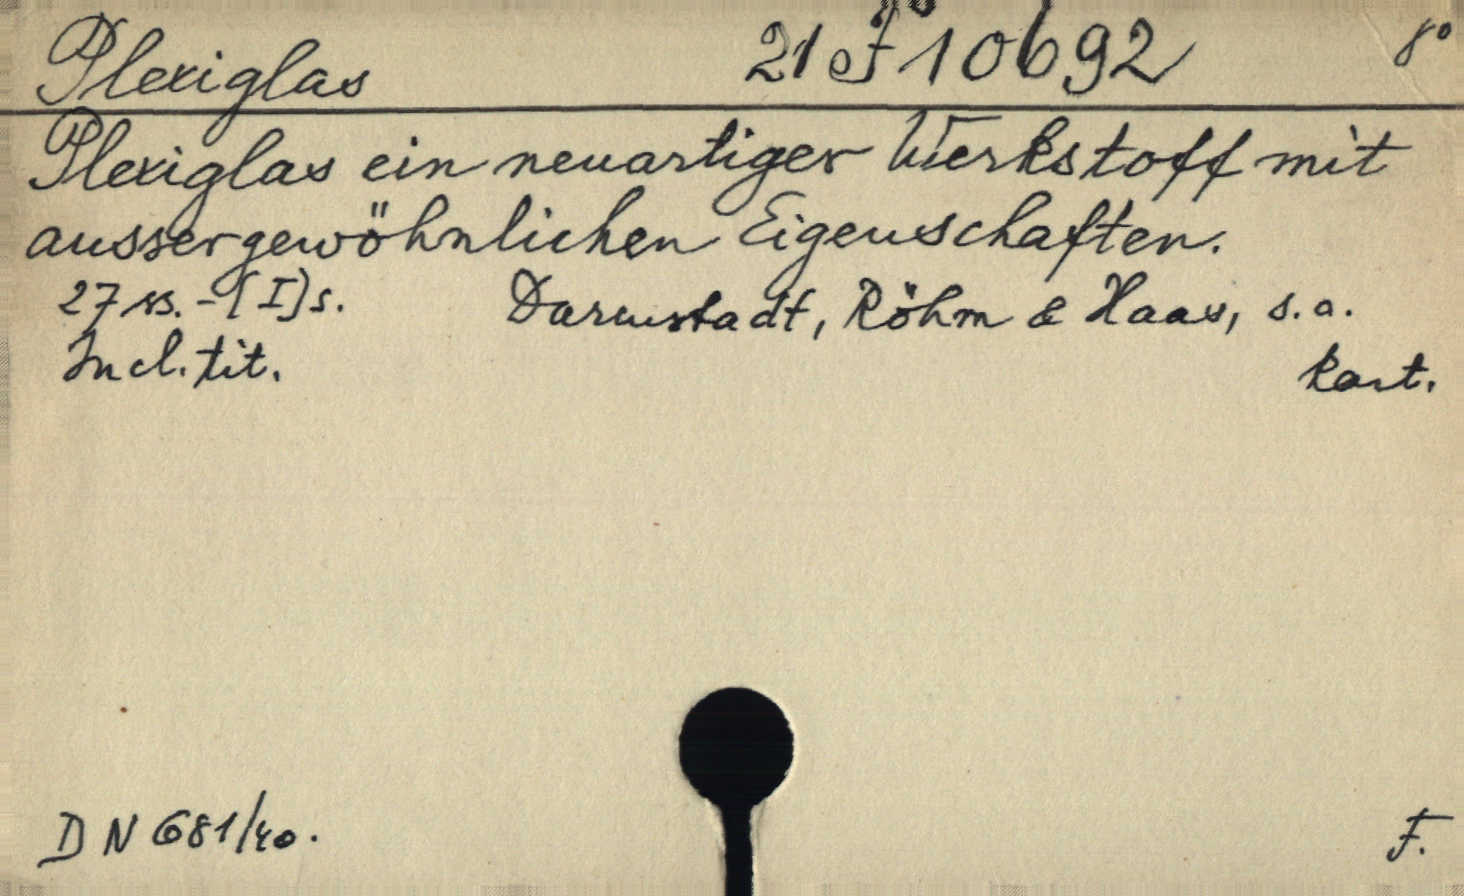 Plexiglas 21 F 10692 8°
Plexiglas ein neuartiger Werkstoff mit
aussergewöhnlichen Eigenschaften.
27 ss. - [I] s. Darmstadt, Röhm & Haas, s.a.
Incl. tit. kart.
DN 681/40. F.